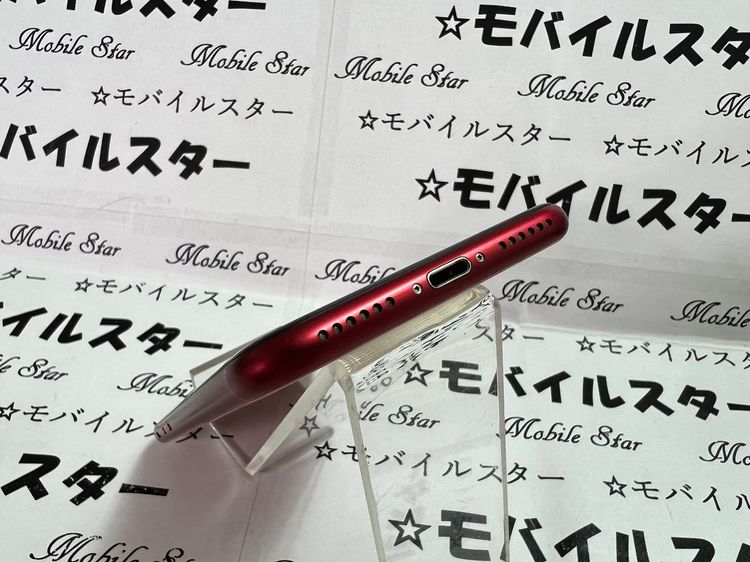 バイルスター
☆モバイルスタ
Mobile Star Mobile Star Mobile Star Mobile Star
スター ☆モバイルスター ☆モバイルスター ☆モバイル
バイルスター ☆モバイルスター
Mobile Star Mobile Star Mobile Star Mobile Star
☆モバイルスター スター ☆モバイルスタ
バイルスター ☆モバイルスター
Mobile Star Mobile Star
☆モバイルスター ☆モバイルスター ☆モバイル
スター ☆モバイルス
Mobile Star